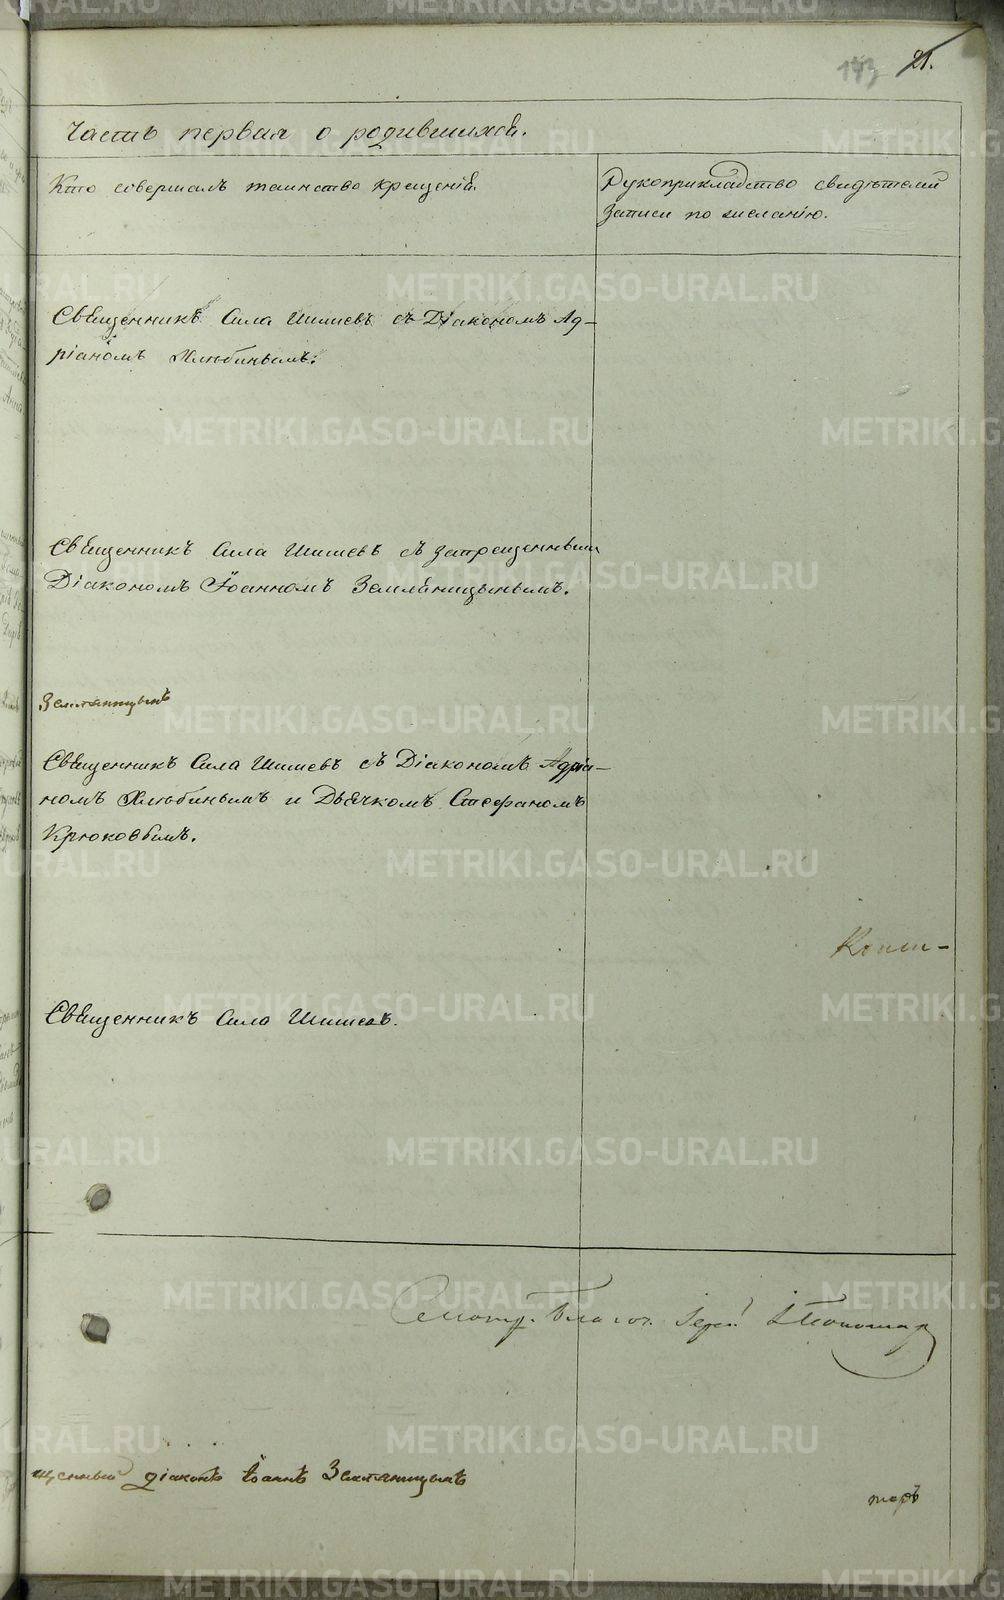 21.
Часть первая о родившихся.
Кто совершалъ таинство крещенія.
Рукоприкладство свидѣтелей
записи по желанію.
Священникъ Сила Шишевъ съ Діакономъ Ад-
ріаномъ Хлюбинымъ.
Священникъ Сила Шишевъ съ запрещеннымъ
Діакономъ Іоанномъ Земляницынымъ.
Земляницынъ
Священникъ Сила Шишевъ съ Діакономъ Адріа-
номъ Хлюбинымъ и Дьячкомъ Стефаномъ
Крюковымъ.
Священникъ Сила Шишевъ.
Смотр. Благоч. Іерей
щенный діаконъ Іоаннъ Земляницынъ
METRIKI.GASO-URAL.RU